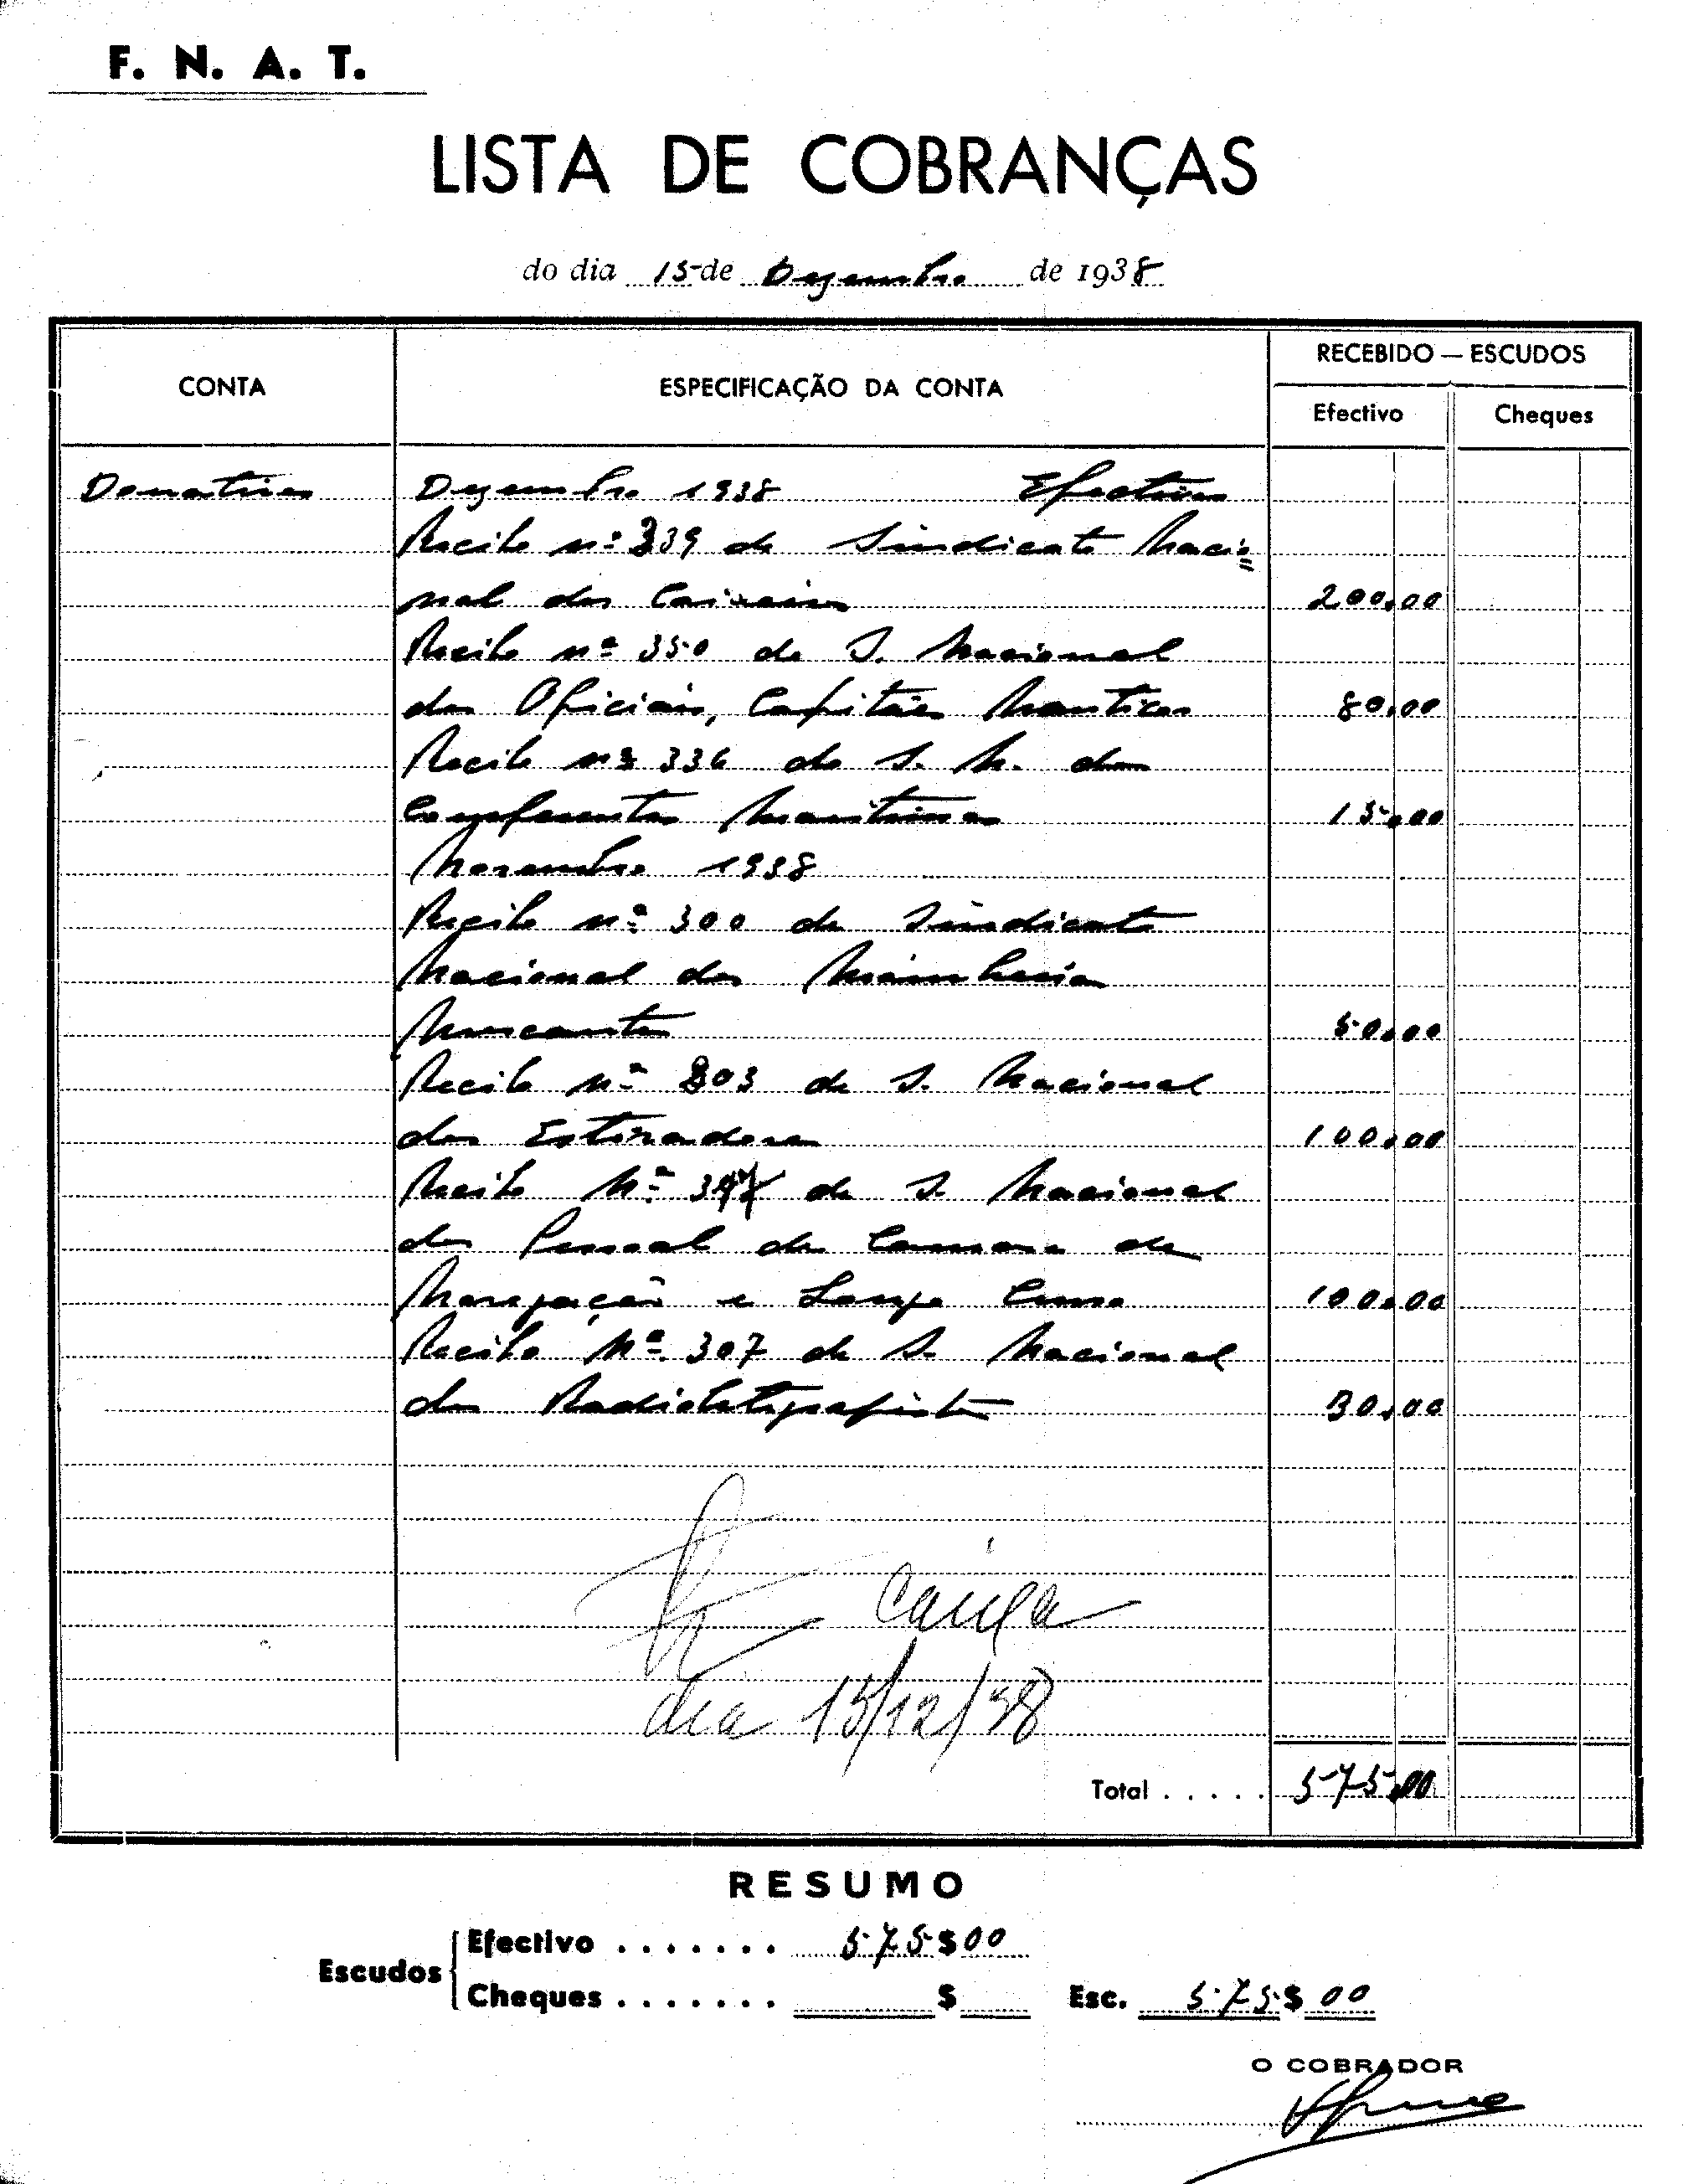 F. N. A. T.
LISTA DE COBRANÇAS
do dia 15 de Dezembro de 1938
CONTA
ESPECIFICAÇÃO DA CONTA
RECEBIDO — ESCUDOS
Efectivo
Cheques
Donativos Dezembro 1938 Efectivos
Recibo nº 339 do Sindicato Nacio
nal dos Caixeiros 200,00
Recibo nº 350 do S. Nacional
dos Oficiais, Capitães Nauticos 80,00
Recibo nº 336 do S. N. dos
Maritimos 15,00
Novembro 1938
Recibo nº 300 do Sindicato
Nacional dos
Mercante 50,00
Recibo nº 303 do S. Nacional
dos Estivadores 100,00
Recibo Nº do S. Nacional
do Pessoal de Camara da
Navegação e Longo Curso 100,00
Recibo Nº 307 do S. Nacional
dos Radiotelegrafistas 30,00
caixa
dia 15/12/38
Total . . . . . 575,00
RESUMO
Escudos
Efectivo . . . . . . . 575$00
Cheques . . . . . . . $
Esc. 575$00
O COBRADOR